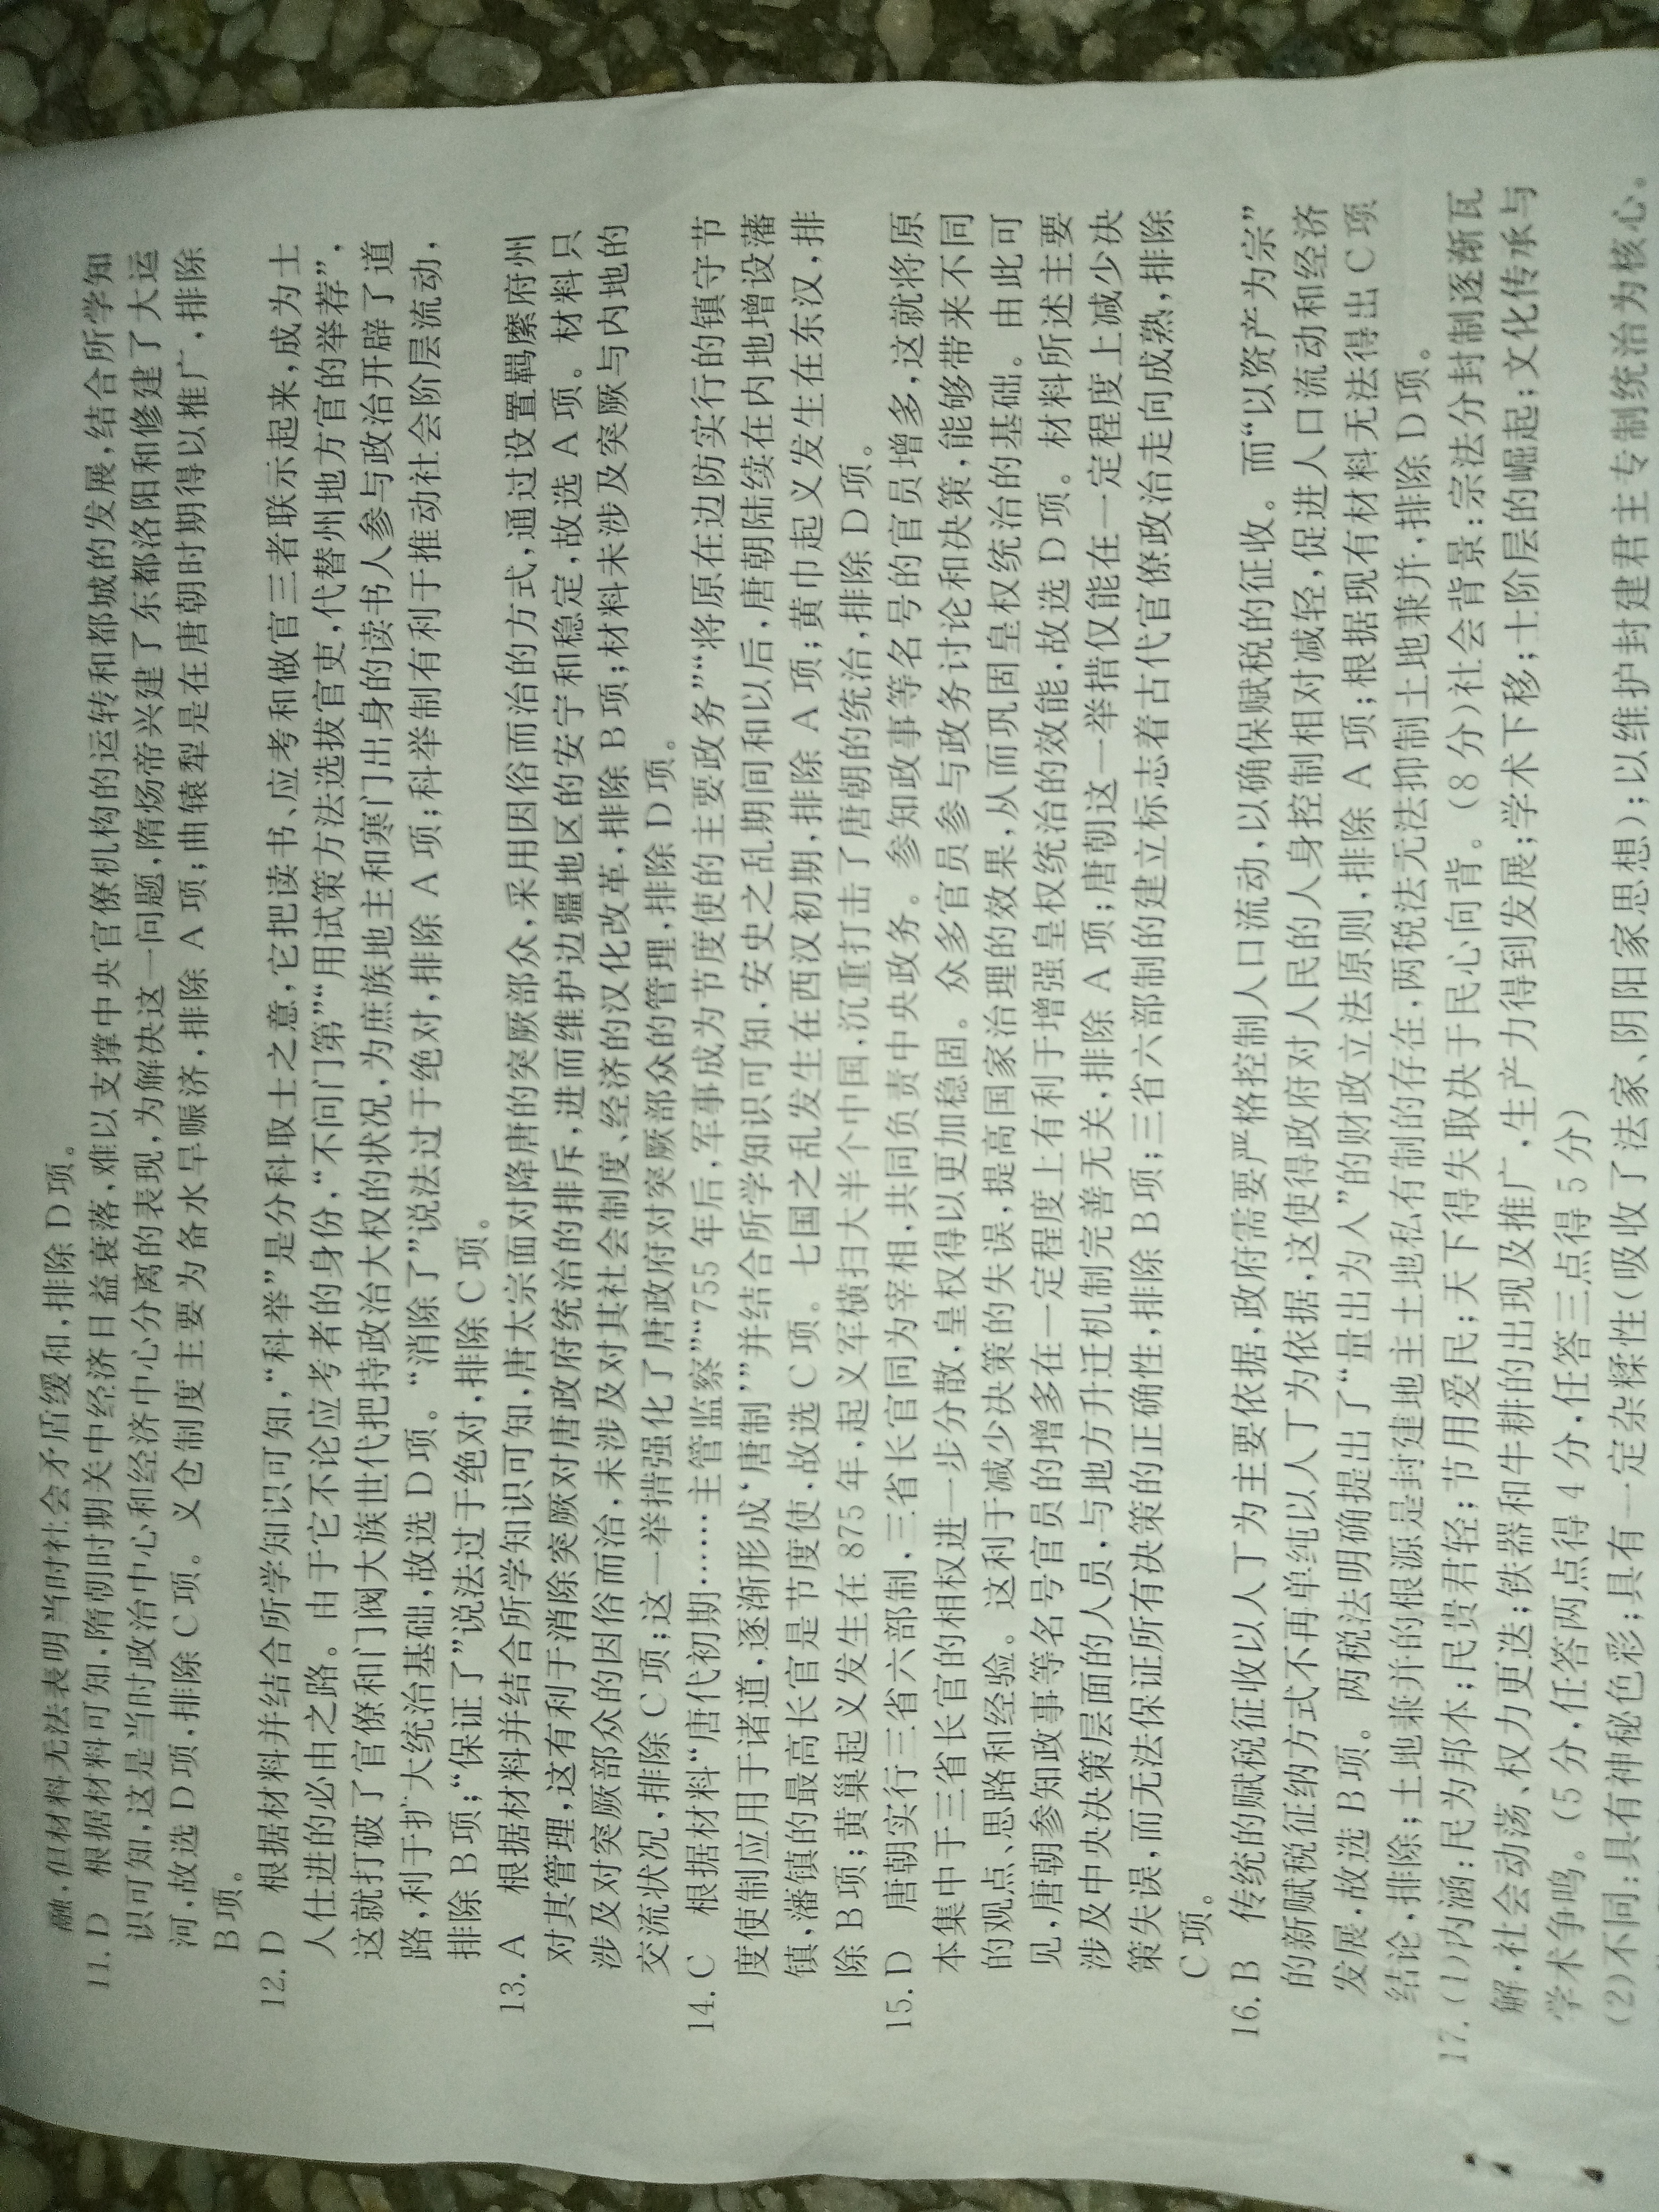 融,但材料无法表明当时社会矛盾缓和,排除 D 项。
11. D 根据材料可知,隋朝时期关中经济日益衰落,难以支撑中央官僚机构的运转和都城的发展,结合所学知
识可知,这是当时政治中心和经济中心分离的表现,为解决这一问题,隋炀帝兴建了东都洛阳和修建了大运
河,故选 D 项,排除 C 项。义仓制度主要为备水旱赈济,排除 A 项;曲辕犁是在唐朝时期得以推广,排除
B 项。
12. D 根据材料并结合所学知识可知,“科举”是分科取士之意,它把读书、应考和做官三者联示起来,成为士
人仕进的必由之路。由于它不论应考者的身份,“不问门第”“用试策方法选拔官吏,代替州地方官的举荐”,
这就打破了官僚和门阀大族世代把持政治大权的状况,为庶族地主和寒门出身的读书人参与政治开辟了道
路,利于扩大统治基础,故选 D 项。“消除了”说法过于绝对,排除 A 项;科举制有利于推动社会阶层流动,
排除 B 项;“保证了”说法过于绝对,排除 C 项。
13. A 根据材料并结合所学知识可知,唐太宗面对降唐的突厥部众,采用因俗而治的方式,通过设置羁縻府州
对其管理,这有利于消除突厥对唐政府统治的排斥,进而维护边疆地区的安宁和稳定,故选 A 项。材料只
涉及对突厥部众的因俗而治,未涉及对其社会制度、经济的汉化改革,排除 B 项;材料未涉及突厥与内地的
交流状况,排除 C 项;这一举措强化了唐政府对突厥部众的管理,排除 D 项。
14. C 根据材料“唐代初期……主管监察”“755 年后,军事成为节度使的主要政务”“将原在边防实行的镇守节
度使制应用于诸道,逐渐形成‘唐制’”并结合所学知识可知,安史之乱期间和以后,唐朝陆续在内地增设藩
镇,藩镇的最高长官是节度使,故选 C 项。七国之乱发生在西汉初期,排除 A 项;黄巾起义发生在东汉,排
除 B 项;黄巢起义发生在 875 年,起义军横扫大半个中国,沉重打击了唐朝的统治,排除 D 项。
15. D 唐朝实行三省六部制,三省长官同为宰相,共同负责中央政务。参知政事等名号的官员增多,这就将原
本集中于三省长官的相权进一步分散,皇权得以更加稳固。众多官员参与政务讨论和决策,能够带来不同
的观点、思路和经验。这利于减少决策的失误,提高国家治理的效果,从而巩固皇权统治的基础。由此可
见,唐朝参知政事等名号官员的增多在一定程度上有利于增强皇权统治的效能,故选 D 项。材料所述主要
涉及中央决策层面的人员,与地方升迁机制完善无关,排除 A 项;唐朝这一举措仅能在一定程度上减少决
策失误,而无法保证所有决策的正确性,排除 B 项;三省六部制的建立标志着古代官僚政治走向成熟,排除
C 项。
16. B 传统的赋税征收以人丁为主要依据,政府需要严格控制人口流动,以确保赋税的征收。而“以资产为宗”
的新赋税征纳方式不再单纯以人丁为依据,这使得政府对人民的人身控制相对减轻,促进人口流动和经济
发展,故选 B 项。两税法明确提出了“量出为入”的财政立法原则,排除 A 项;根据现有材料无法得出 C 项
结论,排除;土地兼并的根源是封建地主土地私有制的存在,两税法无法抑制土地兼并,排除 D 项。
17. (1)内涵:民为邦本;民贵君轻;节用爱民;天下得失取决于民心向背。(8 分)社会背景:宗法分封制逐渐瓦
解,社会动荡、权力更迭;铁器和牛耕的出现及推广,生产力得到发展;学术下移;士阶层的崛起;文化传承与
学术争鸣。(5 分,任答两点得 4 分,任答三点得 5 分)
(2)不同:具有神秘色彩;具有一定杂糅性(吸收了法家、阴阳家思想);以维护封建君主专制统治为核心。